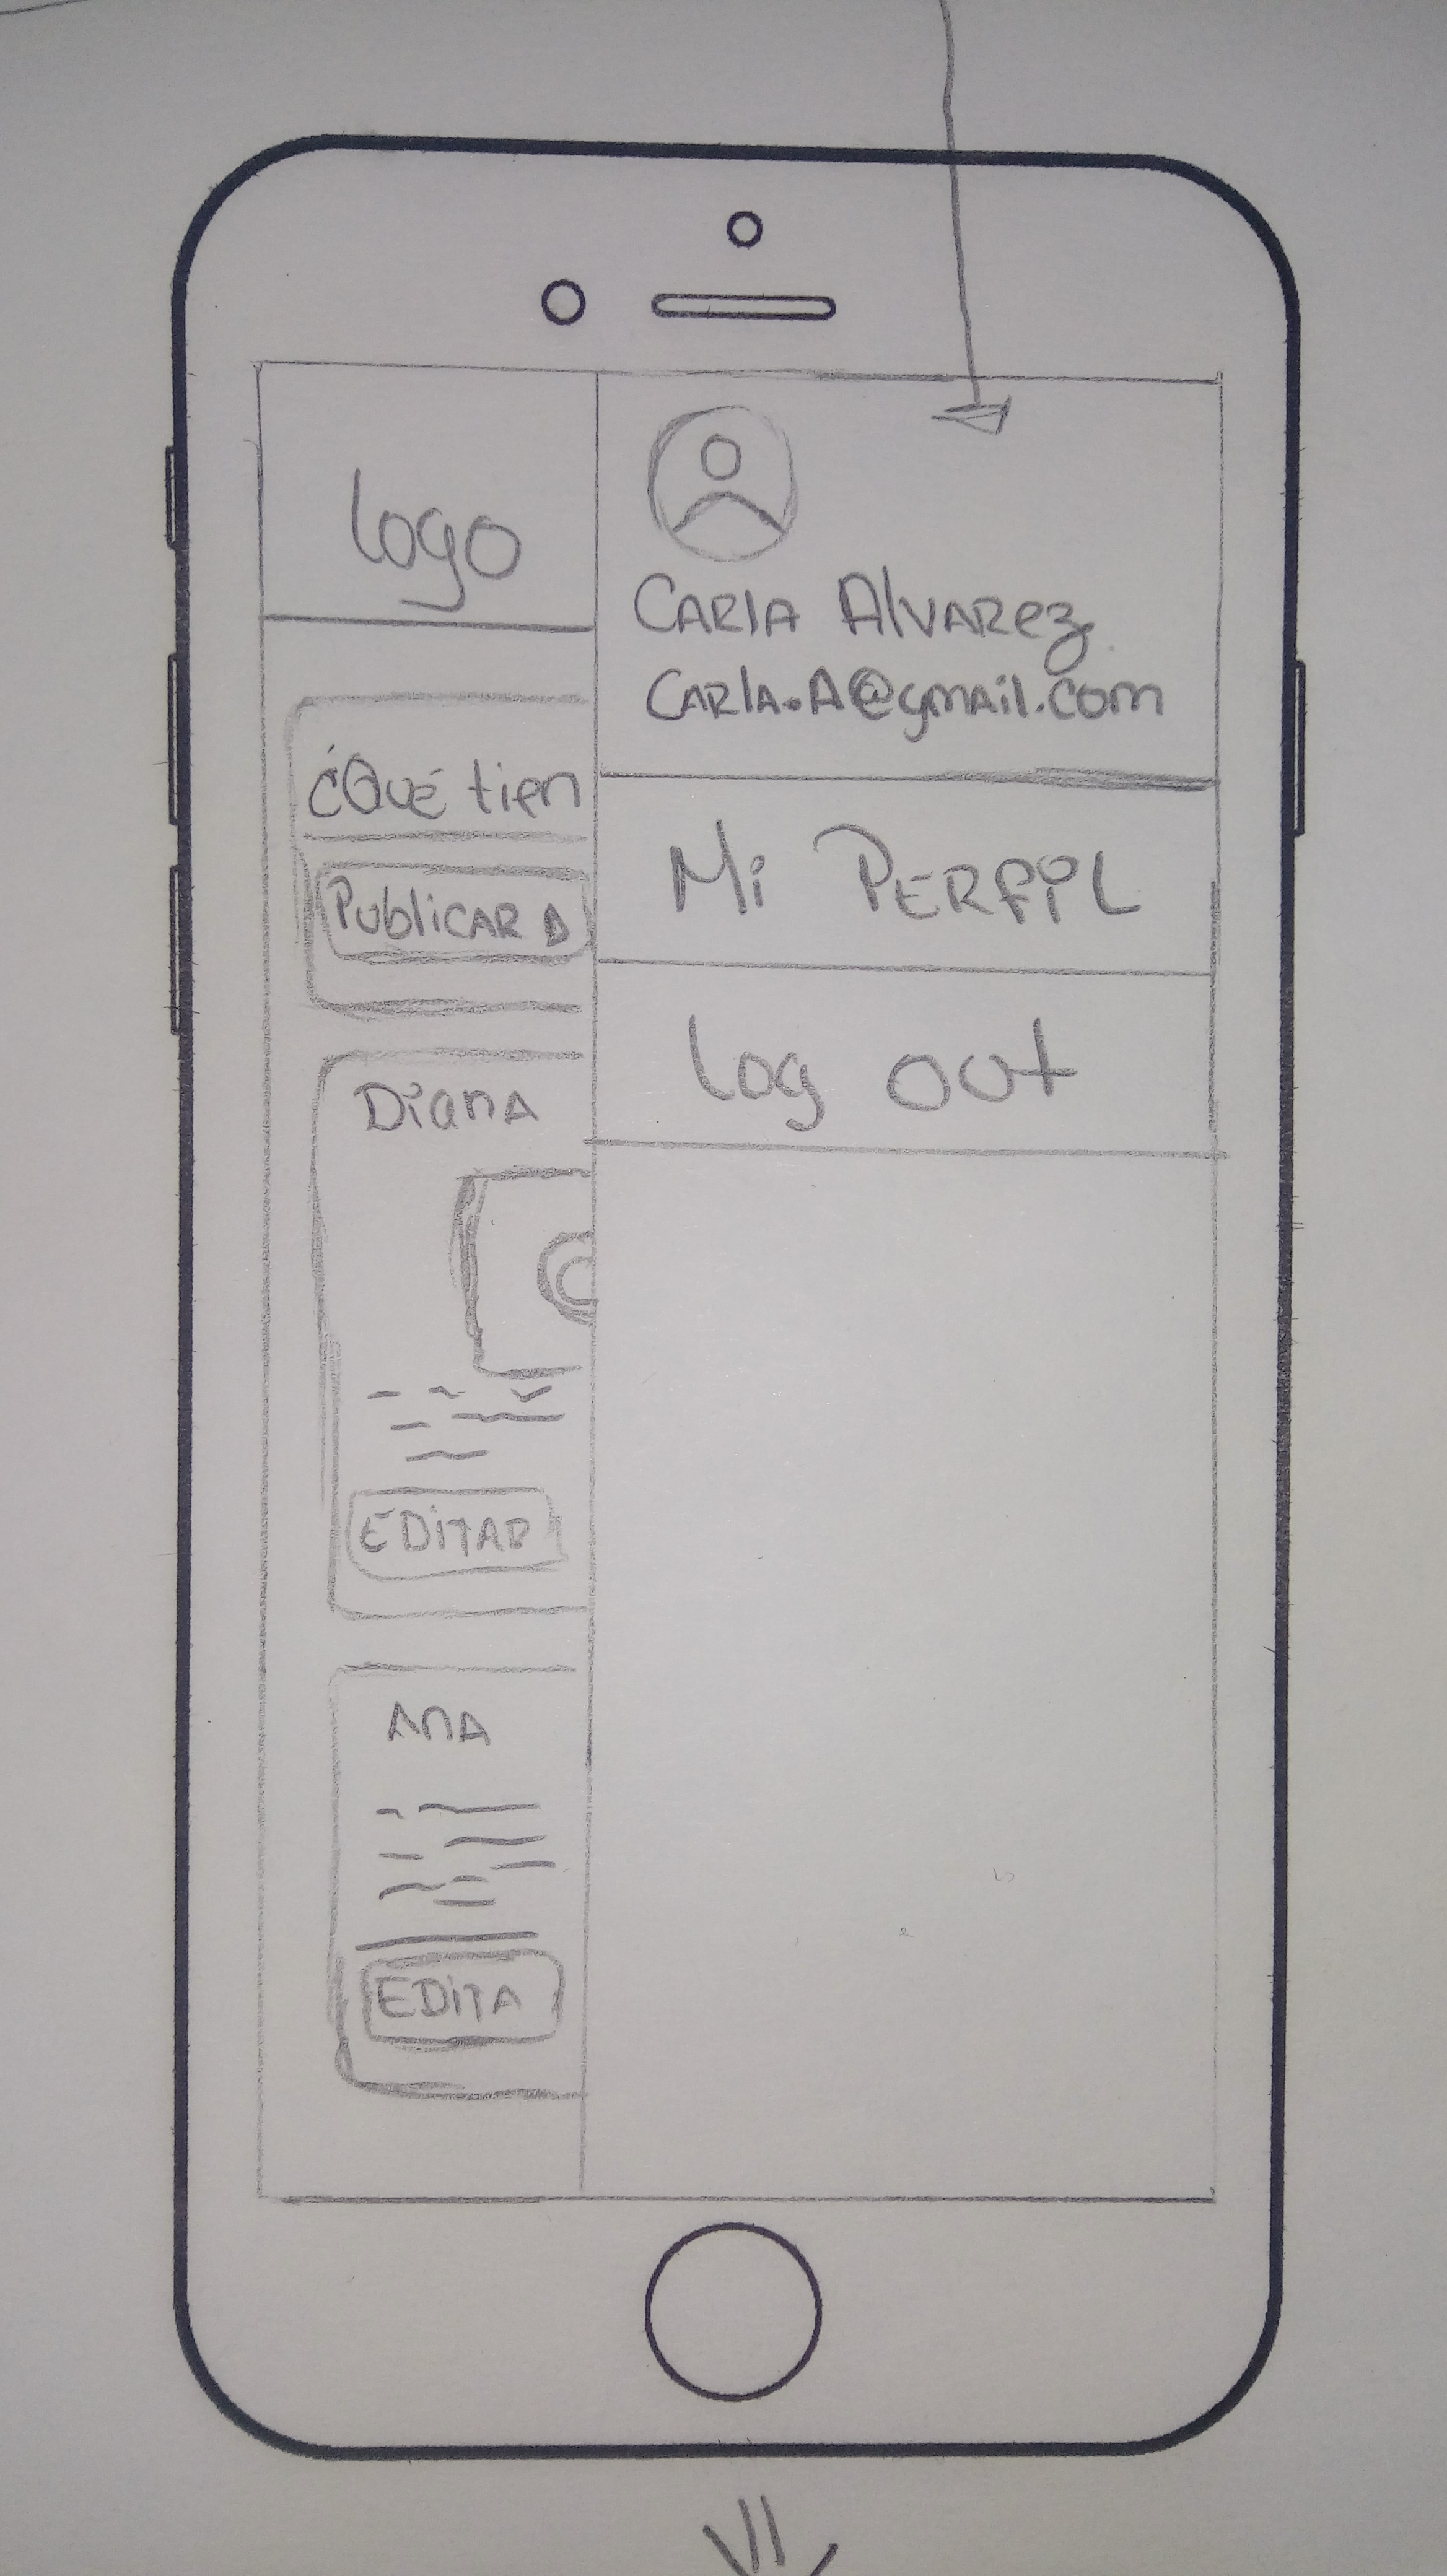 logo
¿Qué tien
Publicar D
Diana
EDITAR
ANA
EDITA
CARLA Alvarez
CARLA.A@gmail.com
Mi PERFIL
log out